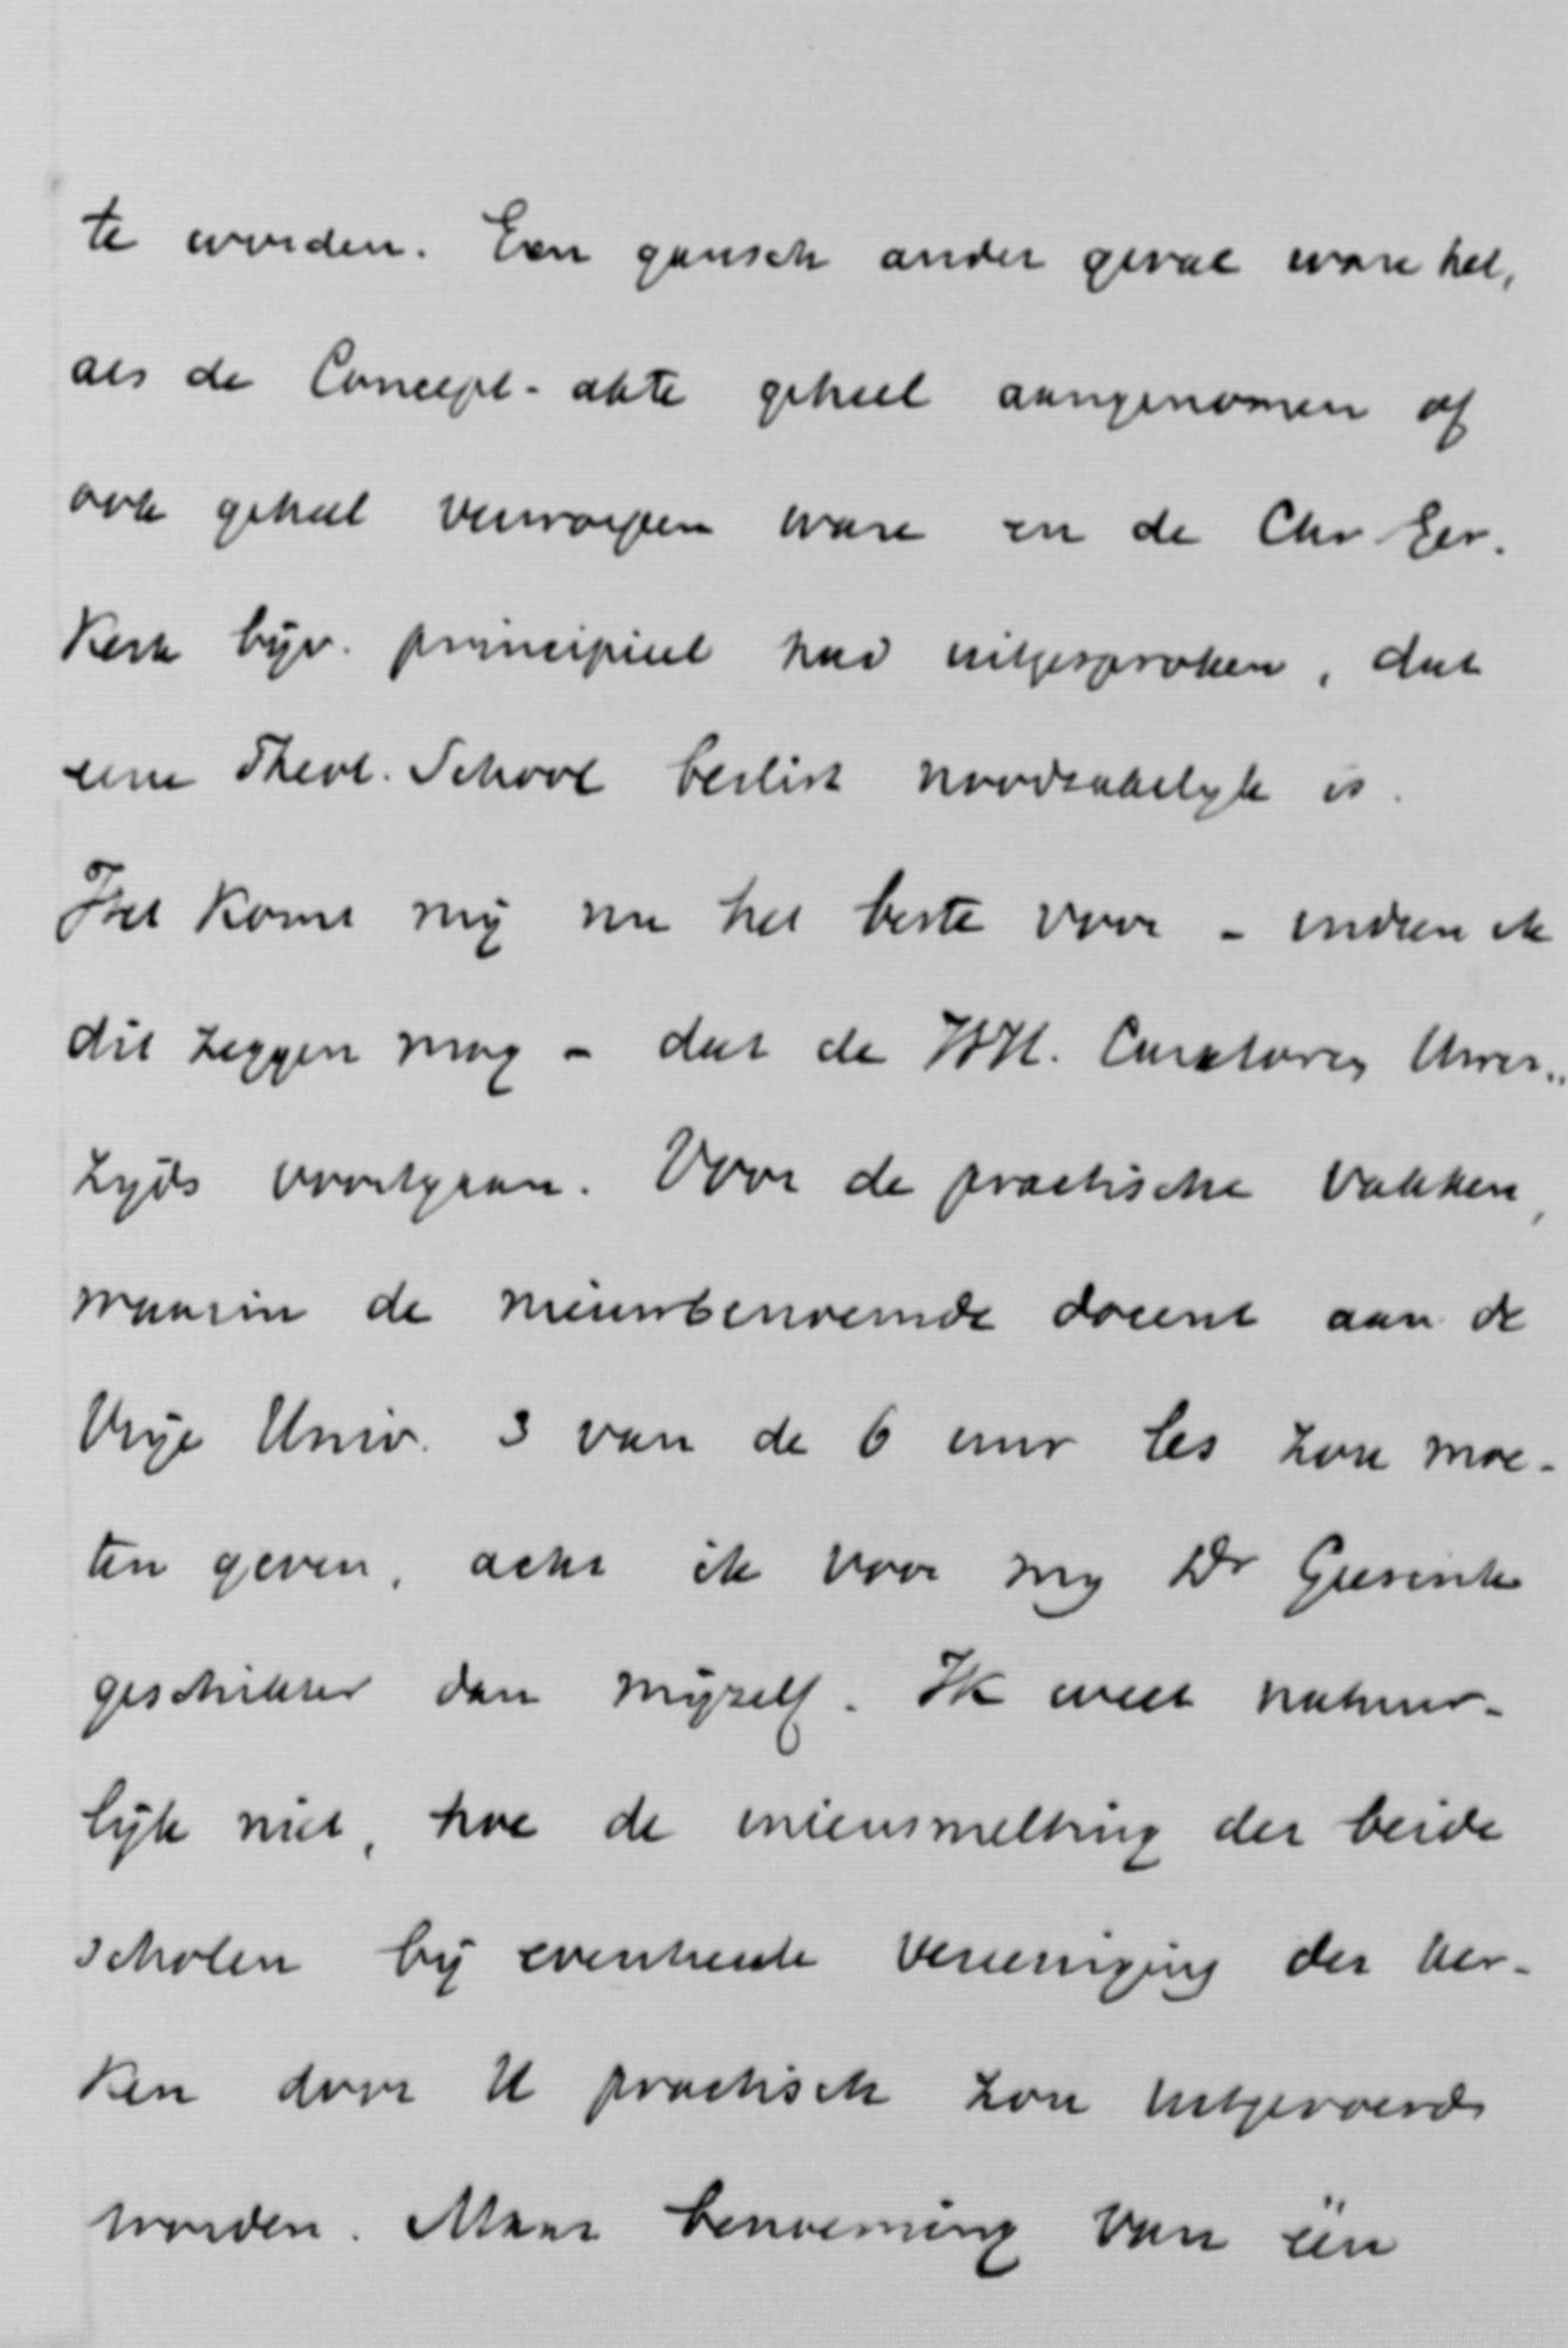 te worden. Een gansch ander geval ware het,
als de Concept-akte geheel aangenomen of
ook geheel verworpen ware en de Chr Ger.
Kerk bijv. principieel had uitgesproken, dat
eene Theol. School beslist noodzakelijk is.
Het komt mij nu het beste voor - indien ik
dit zeggen mag - dat de HH. Curatoren Uwer-
zijds voortgaan. Voor de practische vakken,
waarin de nieuwbenoemde docent aan de
Vrije Univ. 3 van de 6 uur les zou moe-
ten geven, acht ik voor mij Dr Geesink
geschikter dan mijzelf. Ik weet natuur-
lijk niet, hoe de ineensmelting der beide
scholen bij eventueele vereeniging der ker-
ken door U practisch zou uitgevoerd
worden. Maar benoeming van één